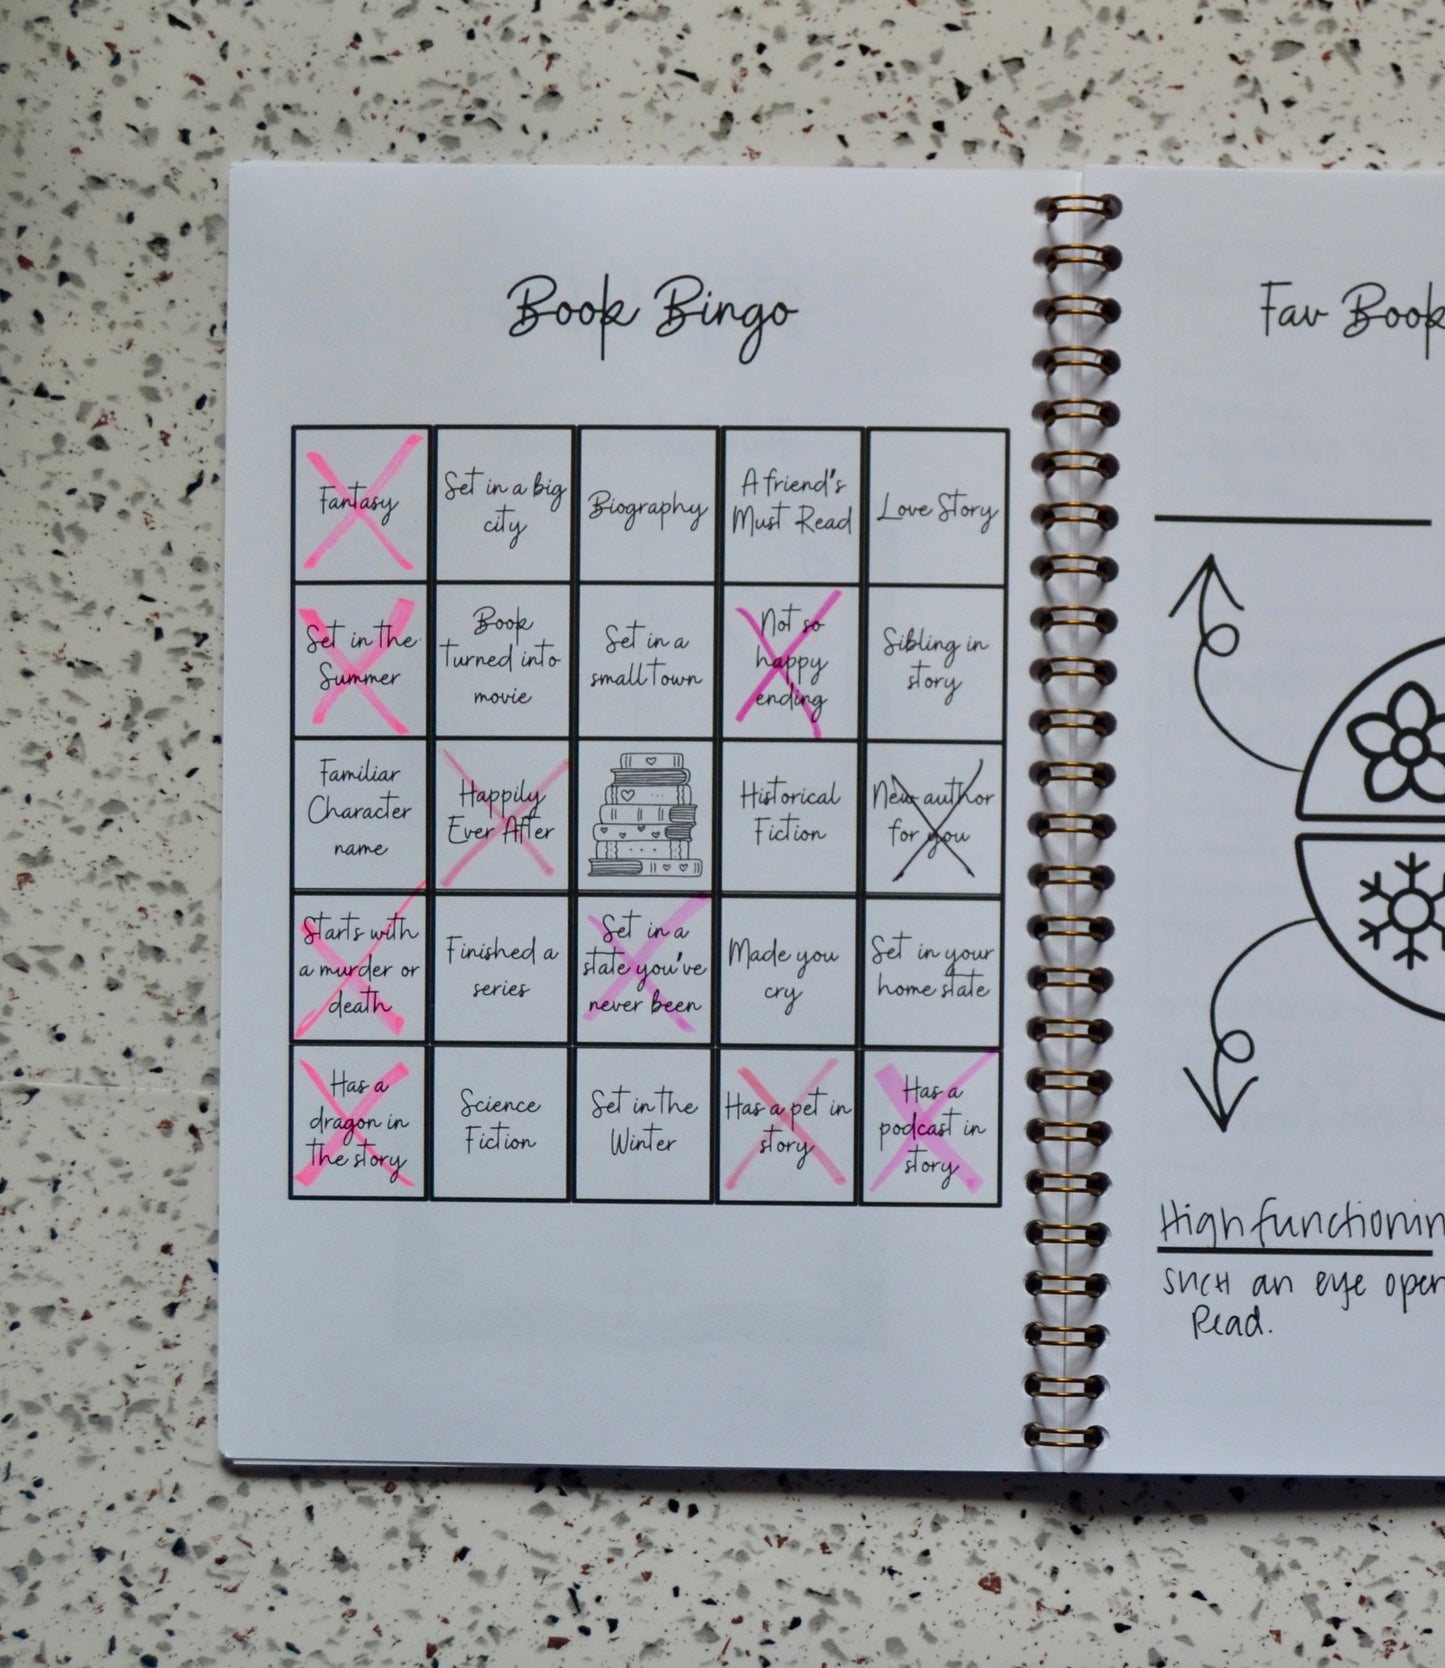 Book Bingo
Fantasy
Set in a big
city
Biography
A friend's
Must Read
Love Story
Set in the
Summer
Book
turned into
movie
Set in a
small town
Not so
happy
ending
Sibling in
story
Familiar
Character
name
Happily
Ever After
Historical
Fiction
New author
for you
Starts with
a murder or
death
Finished a
series
Set in a
state you've
never been
Made you
cry
Set in your
home state
Has a
dragon in
the story
Science
Fiction
Set in the
Winter
Has a pet in
story
Has a
podcast in
story
Fav Book
High functionin
such an eye open
Read.